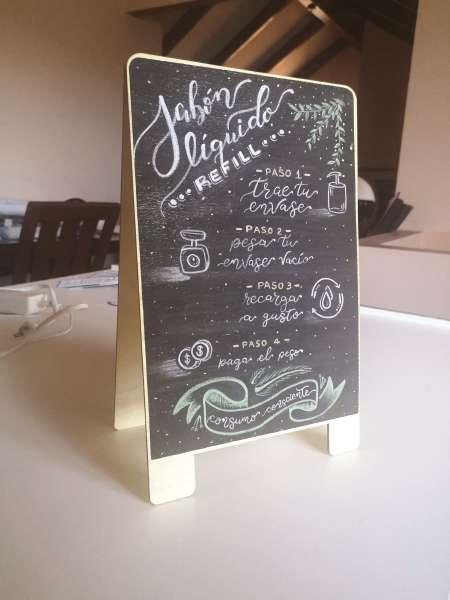 Jabón
líquido
REFILL
- PASO 1 -
trae tu
envase
- PASO 2 -
pesa tu
envase vacío
- PASO 3 -
recarga
a gusto
- PASO 4 -
paga el peso
consumo consciente